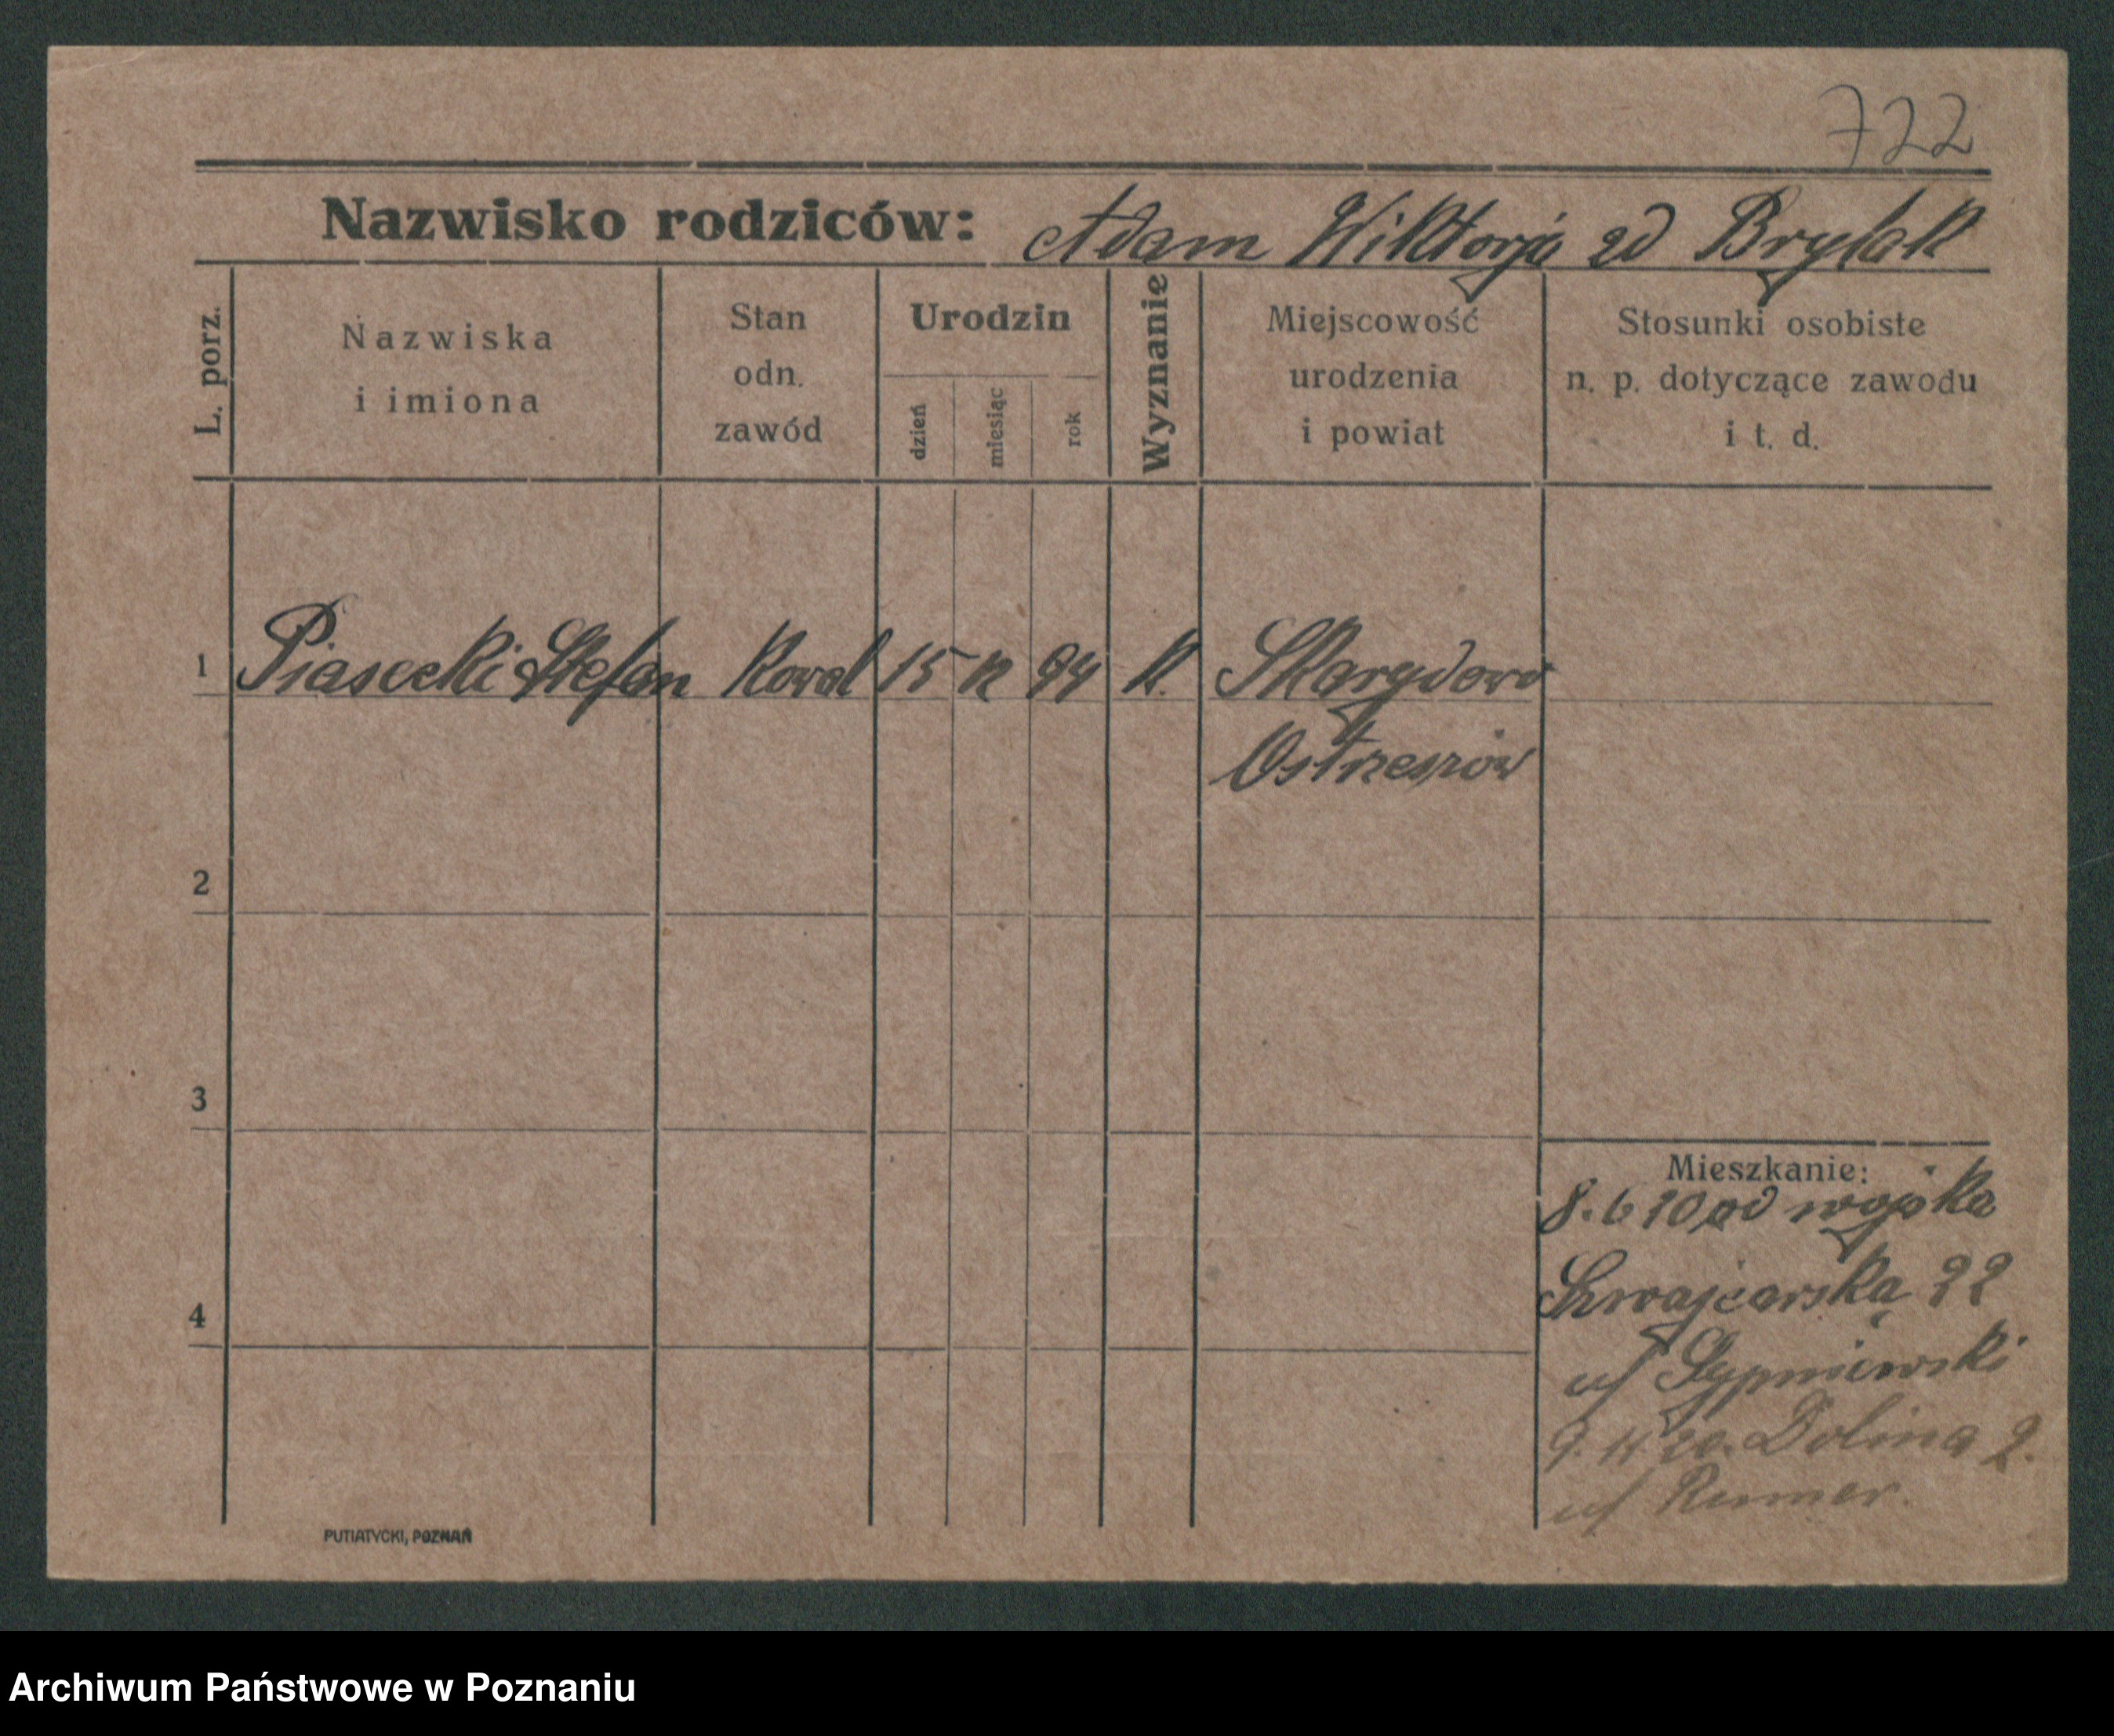 722
Nazwisko rodziców: Adam Wiktorja zd Brylak
L. porz.
Nazwiska i imiona
Stan odn. zawód
Urodzin
dzień miesiąc rok
Wyznanie
Miejscowość urodzenia i powiat
Stosunki osobiste n. p. dotyczące zawodu i t. d.
1 Piasecki Stefan Kowal 15 12 94 k. Skarydowo
Ostrzeszów
2
3
4
Mieszkanie:
8. 6 20 od wojska
Szwajcarska 22
u/ Sypniewski
9. 11 20. Dolina 2.
u/ Rumer.
PUTIATYCKI, POZNAŃ
Archiwum Państwowe w Poznaniu